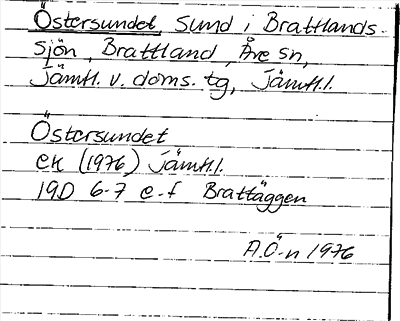 Östersundet, Sund i Brattlands-
sjön, Brattland, Åre sn,
Jämtl. v. doms. tg, Jämtl. l.
Östersundet
ek (1976) Jämtl. l.
19D 6-7 e-f Brattäggen
A.Ö-n 1976